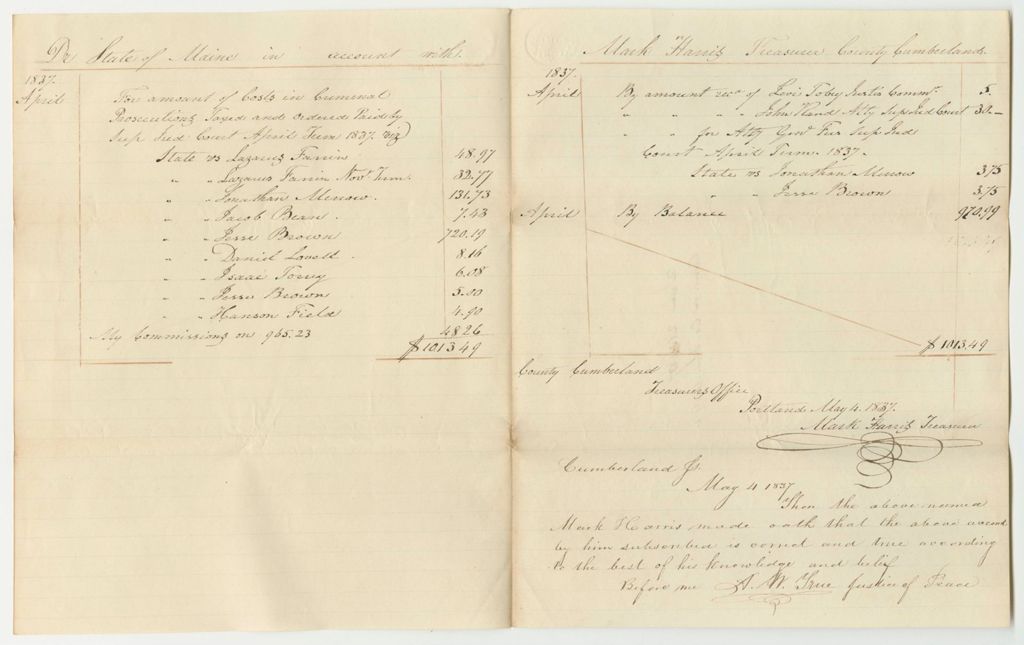 Dr State of Maine in account with
1837.
April For amount of Costs in Criminal
Prosecutions Taxed and ordered Paid by
Sup Jud Court April Term 1837. viz
State vs Lazarus Farrin 48.97
" " Lazarus Farrin Novr. Term. 32.77
" " Jonathan Merrow. 131.73
" " Jacob Bean. 7.43
" " Jesse Brown 720.19
" " Daniel Lovell. 8.16
" " Isaac Torrey 6.08
" " Jesse Brown 5.00
" " Hanson Field 4.90
My Commissions on 965.23 48.26
$1013.49
Mark Harris Treasurer County Cumberland.
1837.
April By amount recd. of Levi Toby Justis Commt. 5.
" " " John Hand Atty Sup Jud Court 30.—
" " for Atty Genl Fees Sup Jud
Court April Term. 1837.
State vs Jonathan Merrow 3.75
" Jesse Brown 3.75
April By Balance 970.99
$1013.49
County Cumberland
Treasurers Office
Portland May 4. 1837.
Mark Harris Treasurer
Cumberland Ss.
May 4 1837
Then the above named
Mark Harris made oath that the above account
by him subscribed is correct and true according
to the best of his knowledge and belief
Before me A. W. True Justice of Peace